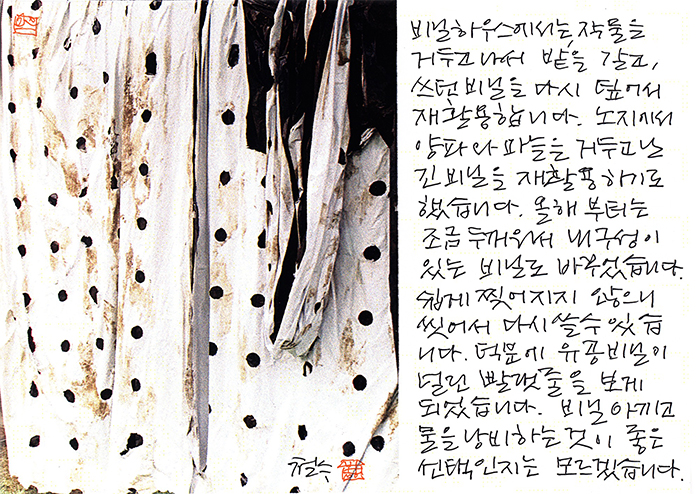 비닐하우스에서는, 작물을
거두고 나서 밭을 갈고,
쓰던 비닐을 다시 덮어서
재활용합니다. 노지에서
양파와 마늘을 거두고 난
긴 비닐을 재활용하기도
했습니다. 올해부터는
조금 두꺼워서 내구성이
있는 비닐로 바꾸었습니다.
쉽게 찢어지지 않으니
씻어서 다시 쓸 수 있습
니다. 덕분에 유공비닐이
널린 빨랫줄을 보게
되었습니다. 비닐 아끼고
물을 낭비하는 것이 좋은
선택인지는 모르겠습니다.
철수